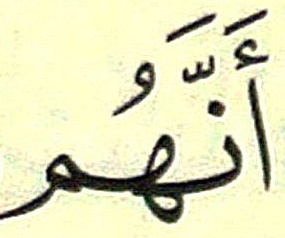 أَنَّهُم